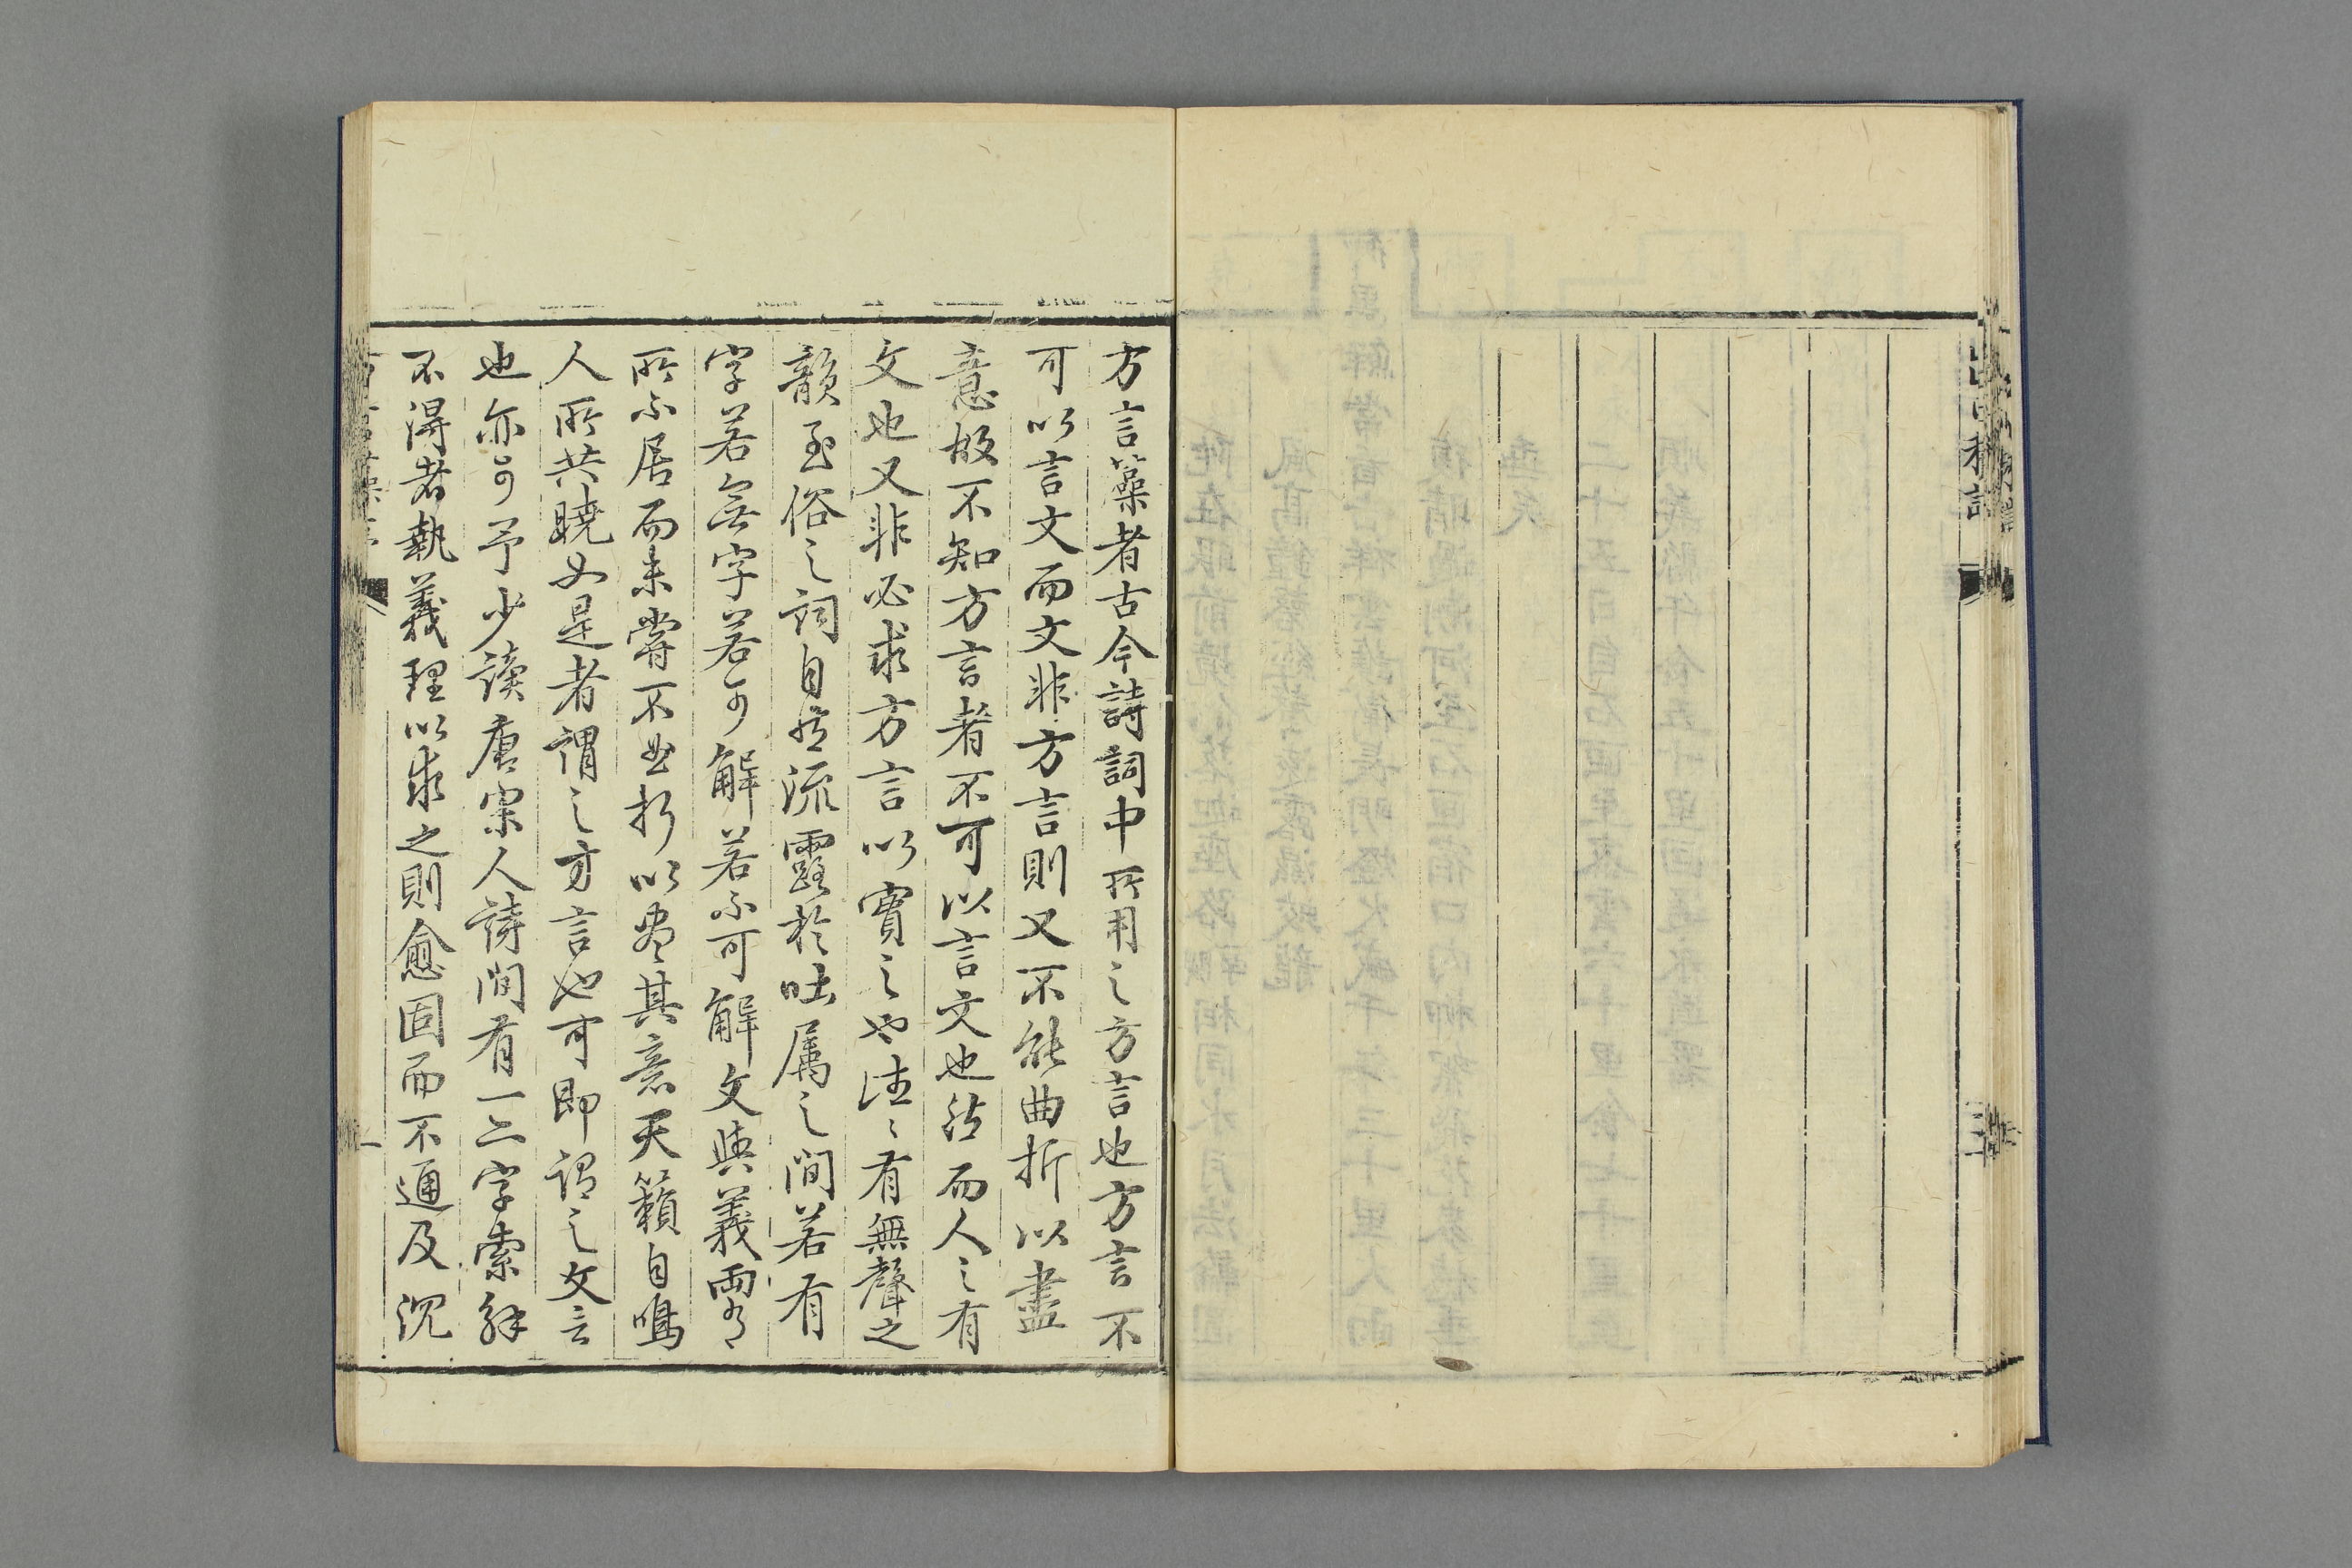 方言藻者古今詩詞中所用之方言也方言不
可以言文而文非方言則又不能曲折以盡
意故不知方言者不可以言文也然而人之有
文也又非必求方言以實之也往々有無聲之
韻至俗之詞自然流露於吐属之間若有
字若無字若可解若不可解文與義兩
所不居而未嘗不曲折以盡其意天籟自鳴
人所共曉如是者謂之方言也可即謂之文言
也亦可予少讀唐宋人詩間有一二字索解
不得者執義理以求之則愈固而不通及沉